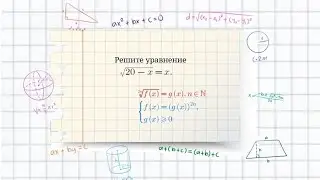 ax² + bx + c = 0
Решите уравнение
√20 − x = x.
ⁿ√f(x) = g(x), n ∈ N
{ f(x) = (g(x))²ⁿ,
g(x) ⩾ 0
ax + by = c
a+(b+c) = (a+b)+c